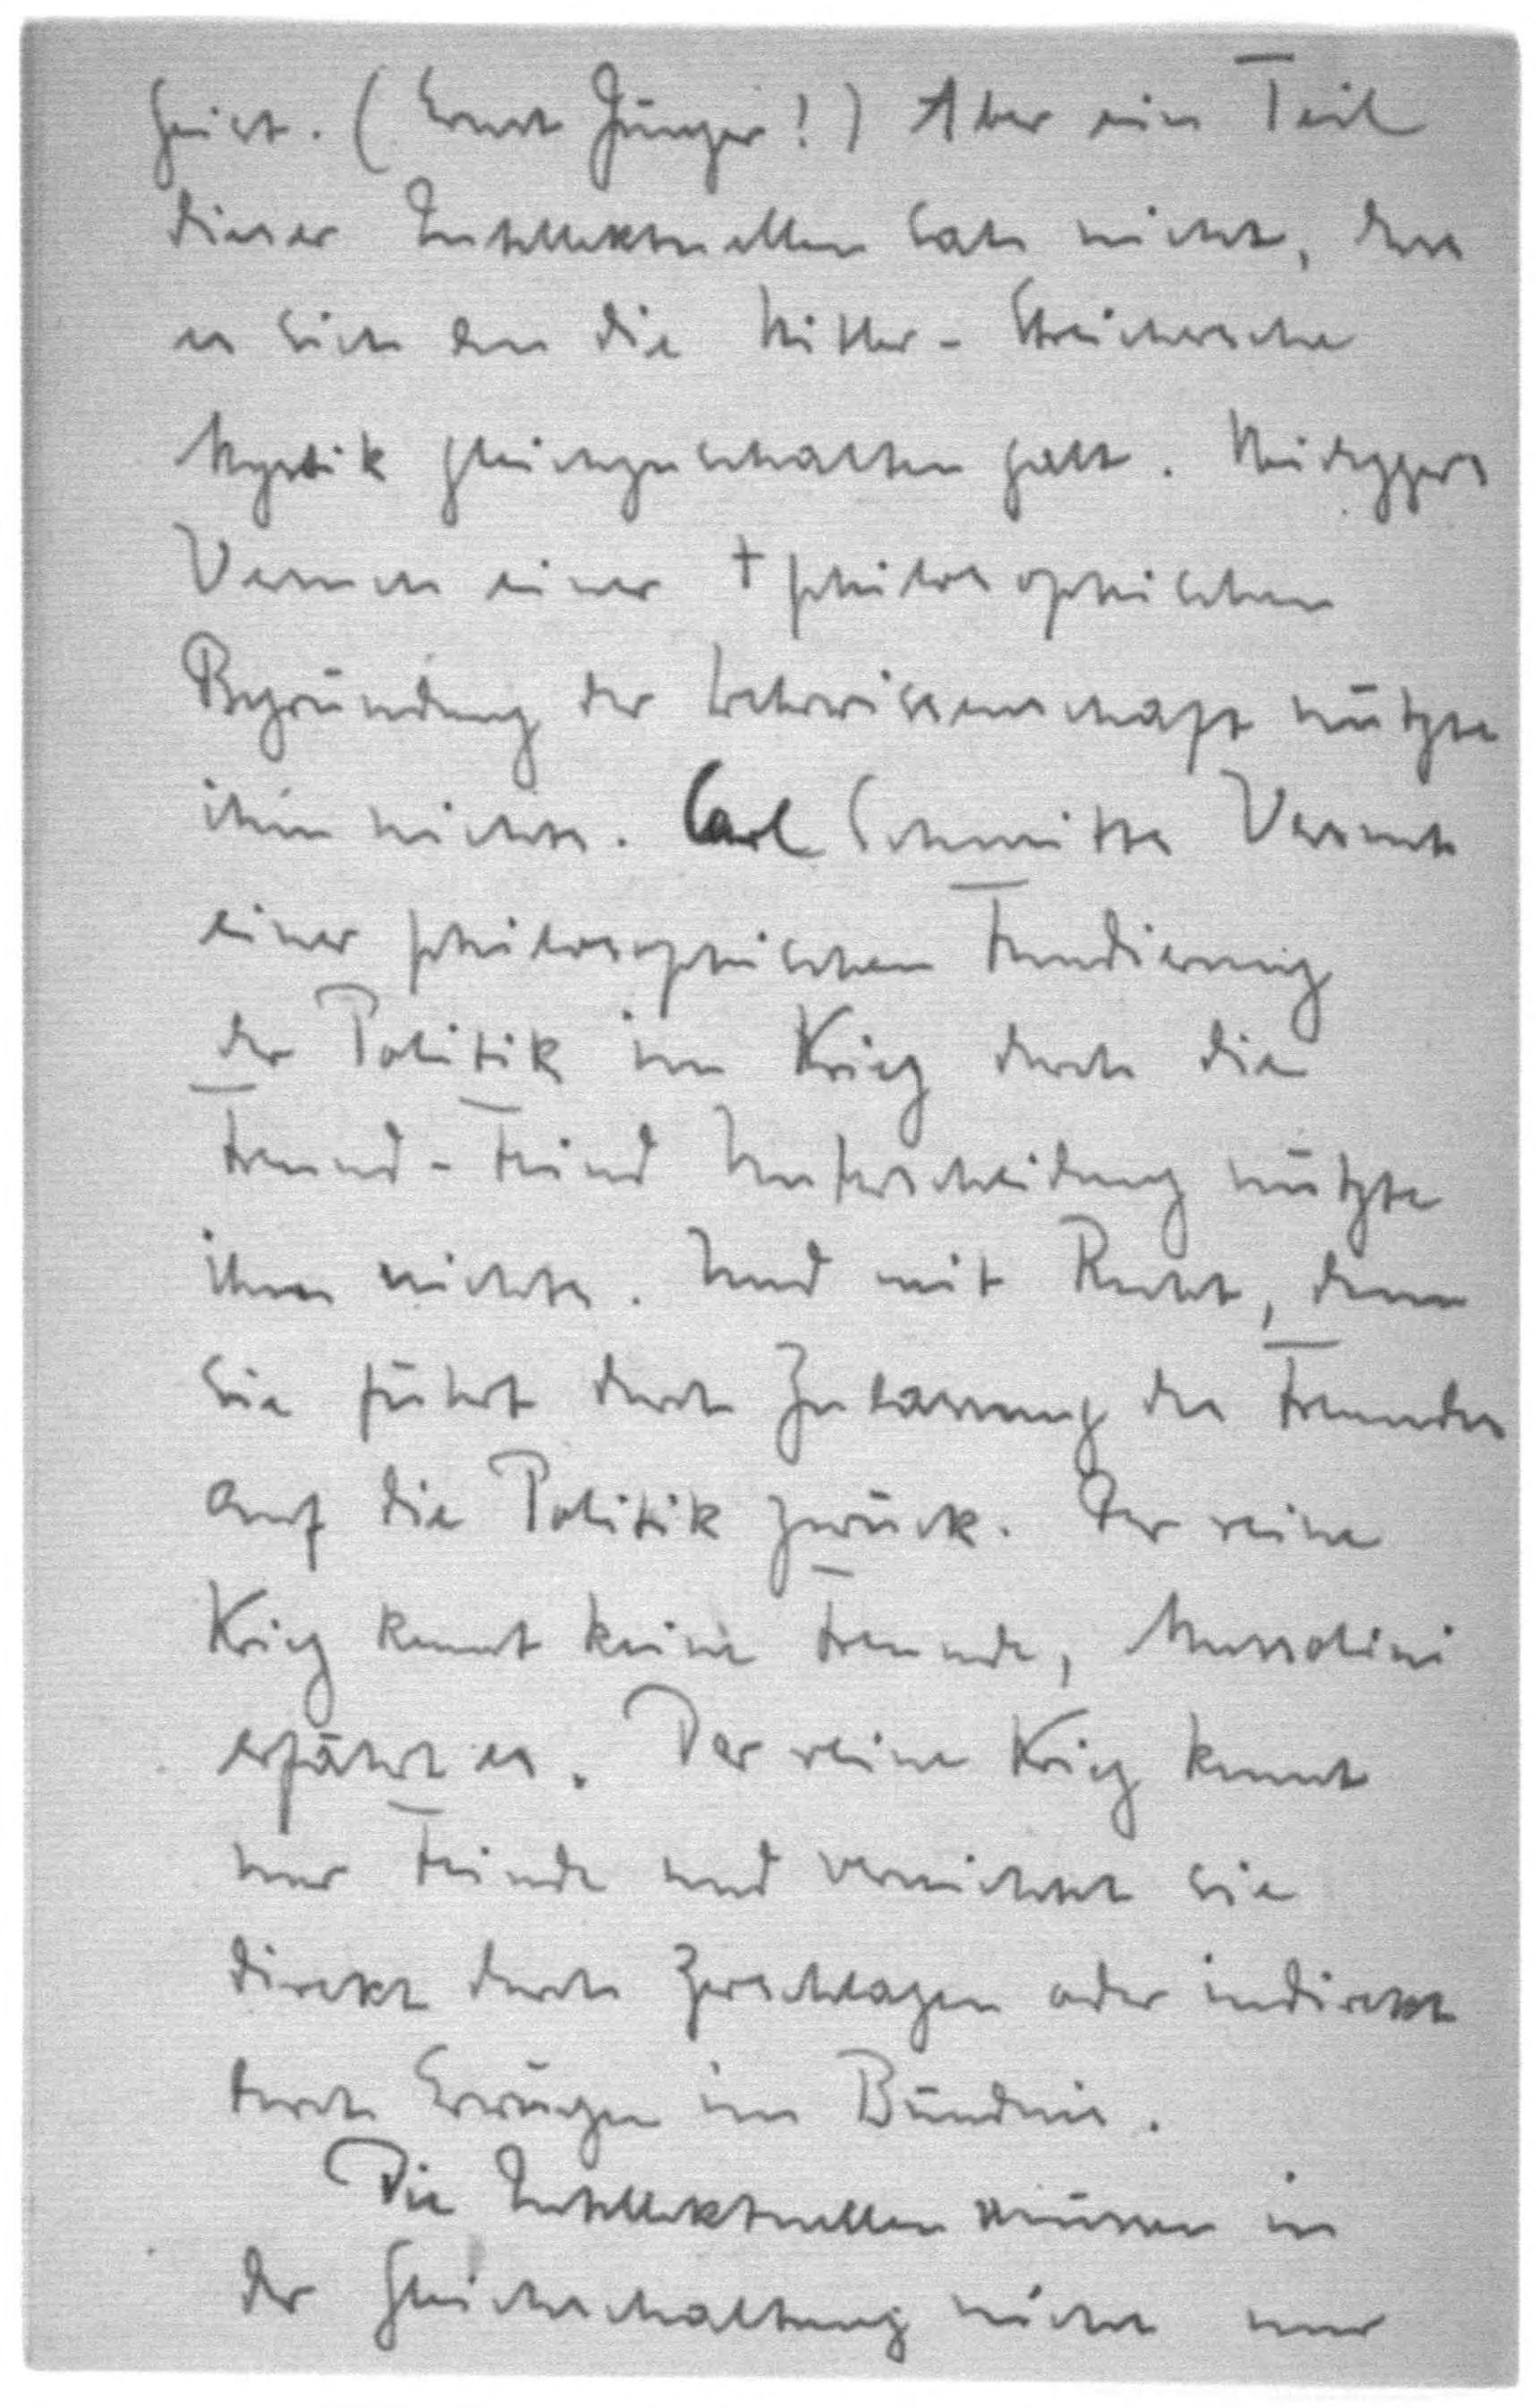 Geist. (Ernst Jünger!) Aber ein Teil
dieser Intellektuellen sah nicht, dass
es sich an die Hitler-Streichersche
Mystik gleichzuschalten galt. Heideggers
Versuch einer + philosophischen
Begründung der Wehrwissenschaft nützte
ihm nichts. Carl Schmitts Versuch
einer philosophischen Fundierung
der Politik im Krieg durch die
Freund-Feind Unterscheidung nützte
ihm nichts. Und mit Recht, denn
sie führt durch Zulassung des Freundes
auf die Politik zurück. Der reine
Krieg kennt keine Freunde, Mussolini
erfährt es. Der reine Krieg kennt
nur Feinde und vernichtet sie
direkt durch Zerschlagen oder indirekt
durch Erwürgen im Bündnis.
Die Intellektuellen müssen in
der Gleichschaltung nicht nur